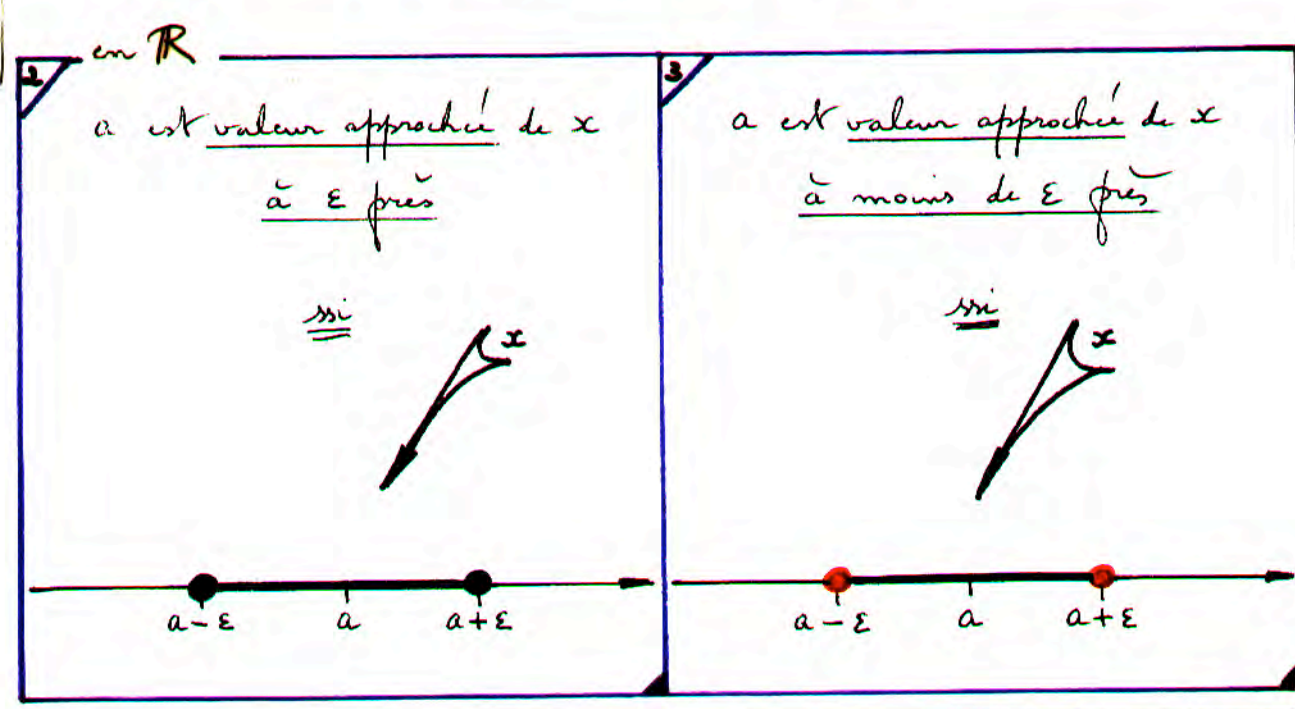 en ℝ
2
a est valeur approchée de x
à ε près
ssi
x
a-ε a a+ε
3
a est valeur approchée de x
à moins de ε près
ssi
x
a-ε a a+ε